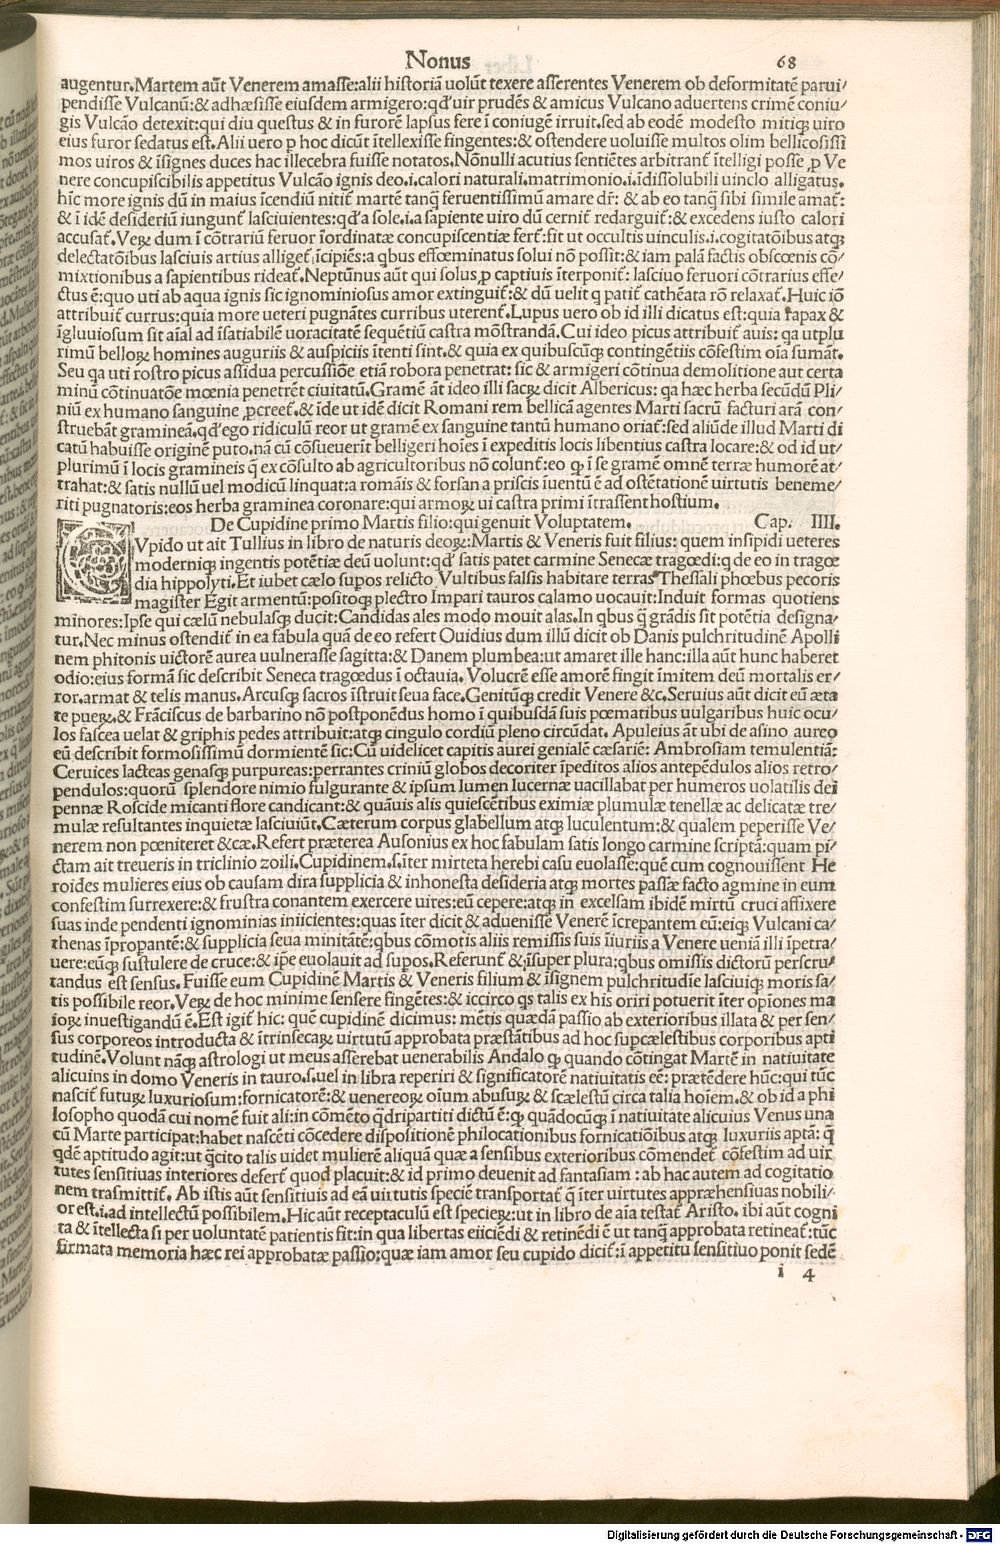 Nonus 68
augentur.Martem aũt Venerem amasse:alii historiã uolũt texere asserentes Venerem ob deformitatẽ parui/
pendisse Vulcanũ:& adhæsisse eiusdem armigero:qd' uir prudẽs & amicus Vulcano aduertens crimẽ coniu/
gis Vulcão detexit:qui diu questus & in furorẽ lapsus fere ĩ coniugẽ irruit.sed ab eodẽ modesto mitiqꝫ uiro
eius furor sedatus est.Alii uero p hoc dicũt ĩtellexisse fingentes:& ostendere uoluisse multos olim bellicosissi
mos uiros & ĩsignes duces hac illecebra fuisse notatos.Nõnulli acutius sentiẽtes arbitranť ĩtelligi posse,p Ve
nere concupiscibilis appetitus Vulcão ignis deo.i.calori naturali.matrimonio.i.ĩdissolubili uinclo alligatus.
hĩc more ignis dũ in maius ĩcendiũ nitiť martẽ tanq̃ feruentissimũ amare dr̃: & ab eo tanq̃ sibi simile amať:
& ĩ idẽ desideriũ iungunť lasciuientes:qd'a sole.i.a sapiente uiro dũ cerniť redarguiť:& excedens iusto calori
accusať.Veꝝ dum ĩ cõtrariũ feruor ĩordinatæ concupiscentiæ ferť:fit ut occultis uinculis.i.cogitatõibus atqꝫ
delectatõibus lasciuis artius alligeť ĩcipiẽs:a qbus effœminatus solui nõ possit:& iam palã factis obscœnis cõ/
mixtionibus a sapientibus rideať.Neptũnus aũt qui solus,p captiuis ĩterponiť: lasciuo feruori cõtrarius effe/
ctus ẽ:quo uti ab aqua ignis sic ignominiosus amor extinguiť:& dũ uelit q patiť cathẽata rõ relaxať.Huic iõ
attribuiť currus:quia more ueteri pugnãtes curribus uterenť.Lupus uero ob id illi dicatus est:quia rapax &
ĩgluuiosum sit aĩal ad ĩsatiabilẽ uoracitatẽ sequẽtiũ castra mõstrandã.Cui ideo picus attribuiť auis: qa utplu
rimũ belloꝝ homines auguriis & auspiciis ĩtenti sint.& quia ex quibuscũqꝫ contingẽtiis cõfestim oĩa sumãt.
Seu qa uti rostro picus assidua percussiõe etiã robora penetrat: sic & armigeri cõtinua demolitione aut certa
minũ cõtinuatõe mœnia penetrẽt ciuitatũ.Gramẽ ãt ideo illi sacꝝ dicit Albericus: qa hæc herba secũdũ Pli/
niũ ex humano sanguine ,pcreeť.& ĩde ut idẽ dicit Romani rem bellicã agentes Marti sacrũ facturi arã con/
struebãt gramineã.qd'ego ridiculũ reor ut gramẽ ex sanguine tantũ humano oriať:sed aliũde illud Marti di
catũ habuisse originẽ puto.nã cũ cõsueuerit belligeri hoĩes ĩ expeditis locis libentius castra locare:& od id ut/
plurimũ ĩ locis gramineis q̃ ex cõsulto ab agricultoribus nõ colunť:eo qꝫ ĩ se gramẽ omnẽ terræ humorẽ at/
trahat:& satis nullũ uel modicũ linquat:a romãis & forsan a priscis iuentũ ẽ ad ostẽtationẽ uirtutis beneme/
riti pugnatoris:eos herba graminea coronare:qui armoꝝ ui castra primi ĩtrassent hostium.
De Cupidine primo Martis filio:qui genuit Voluptatem. Cap. IIII.
CVpido ut ait Tullius in libro de naturis deoꝝ:Martis & Veneris fuit filius: quem insipidi ueteres
moderniqꝫ ingentis potẽtiæ deũ uolunt:qd' satis patet carmine Senecæ tragœdi:q de eo in tragœ
dia hippolyti.Et iubet cælo supos relicto Vultibus falsis habitare terras Thessali phœbus pecoris
magister Egit armentũ:positoqꝫ plectro Impari tauros calamo uocauit:Induit formas quotiens
minores:Ipse qui cælũ nebulasqꝫ ducit:Candidas ales modo mouit alas.In qbus q̃ grãdis sit potẽtia designa/
tur.Nec minus ostendiť in ea fabula quã de eo refert Ouidius dum illũ dicit ob Danis pulchritudinẽ Apolli
nem phitonis uictorẽ aurea uulnerasse sagitta:& Danem plumbea:ut amaret ille hanc:illa aũt hunc haberet
odio:eius formã sic describit Seneca tragœdus ĩ octauia. Volucrẽ esse amorẽ fingit ĩmitem deũ mortalis er/
ror.armat & telis manus.Arcusqꝫ sacros ĩstruit seua face.Genitũqꝫ credit Venere &c.Seruius aũt dicit eũ æta
te pueꝝ.& Frãciscus de barbarino nõ postponẽdus homo ĩ quibusdã suis pœmatibus uulgaribus huic ocu/
los fascea uelat & griphis pedes attribuit:atqꝫ cingulo cordiũ pleno circũdat. Apuleius ãt ubi de asino aureo
eũ describit formosissimũ dormientẽ sic:Cũ uidelicet capitis aurei genialẽ cæsariẽ: Ambrosiam temulentiã:
Ceruices lacteas genasqꝫ purpureas:perrantes criniũ globos decoriter ĩpeditos alios antepẽdulos alios retro/
pendulos:quorũ splendore nimio fulgurante & ipsum lumen lucernæ uacillabat per humeros uolatilis dei
pennæ Roscide micanti flore candicant:& quãuis alis quiescẽtibus eximiæ plumulæ tenellæ ac delicatæ tre/
mulæ resultantes inquietæ lasciuiũt.Cæterum corpus glabellum atqꝫ luculentum:& qualem peperisse Ve/
nerem non pœniteret &cæ.Refert præterea Ausonius ex hoc fabulam satis longo carmine scriptã:quam pi/
ctam ait treueris in triclinio zoili.Cupidinem.s.ĩter mirteta herebi casu euolasse:quẽ cum cognouissent He
roides mulieres eius ob causam dira supplicia & inhonesta desideria atqꝫ mortes passæ facto agmine in eum
confestim surrexere:& frustra conantem exercere uires:eũ cepere:atqꝫ in excelsam ibidẽ mirtũ cruci affixere
suas inde pendenti ignominias iniicientes:quas ĩter dicit & aduenisse Venerẽ ĩcrepantem eũ:eiqꝫ Vulcani ca/
thenas ĩpropantẽ:& supplicia seua minitãtẽ:qbus cõmotis aliis remissis suis ĩiuriis a Venere ueniã illi ĩpetra/
uere:eũqꝫ sustulere de cruce:& ipe euolauit ad supos.Referunť & ĩsuper plura:qbus omissis dictorũ perscru/
tandus est sensus. Fuisse eum Cupidinẽ Martis & Veneris filium & ĩsignem pulchritudĩe lasciuiqꝫ moris sa/
tis possibile reor.Veꝝ de hoc minime sensere fingẽtes:& iccirco qs talis ex his oriri potuerit ĩter opiones ma
ioꝝ inuestigandũ ẽ.Est igiť hic: quẽ cupidinẽ dicimus: mẽtis quædã passio ab exterioribus illata & per sen/
sus corporeos introducta & ĩtrinsecaꝝ uirtutũ approbata præstãtibus ad hoc supcælestibus corporibus apti
tudinẽ.Volunt nãqꝫ astrologi ut meus asserebat uenerabilis Andalo qꝫ quando cõtingat Martẽ in natiuitate
alicuius in domo Veneris in tauro.s.uel in libra reperiri & significatorẽ natiuitatis eẽ: prætẽdere hũc:qui tũc
nasciť futuꝝ luxuriosum:fornicatorẽ:& uenereoꝝ oĩum abusuꝝ & scælestũ circa talia hoĩem.& ob id a phi
losopho quodã cui nomẽ fuit ali:in cõmẽto q̃dripartiti dictũ ẽ:qꝫ quãdocũqꝫ ĩ natiuitate alicuius Venus una
cũ Marte participat:habet nascẽti cõcedere dispositionẽ philocationibus fornicatiõibus atqꝫ luxuriis aptã: q̃
qdẽ aptitudo agit:ut q̃cito talis uidet mulierẽ aliquã quæ a sensibus exterioribus cõmendeť cõfestim ad uir
tutes sensitiuas interiores deferť quod placuit:& id primo deuenit ad fantasiam : ab hac autem ad cogitatio
nem trasmittiť. Ab istis aũt sensitiuis ad eã uirtutis speciẽ transportať q̃ ĩter uirtutes appræhensiuas nobili/
or est.i.ad intellectũ possibilem.Hic aũt receptaculũ est specieꝝ:ut in libro de aĩa testať Aristo. ibi aũt cogni
ta & ĩtellecta si per uoluntatẽ patientis fit:in qua libertas eiiciẽdi & retinẽdi ẽ ut tanq̃ approbata retineať:tũc
firmata memoria hæc rei approbatæ passio:quæ iam amor seu cupido diciť:ĩ appetitu sensitiuo ponit sedẽ
i 4
Digitalisierung gefördert durch die Deutsche Forschungsgemeinschaft - DFG